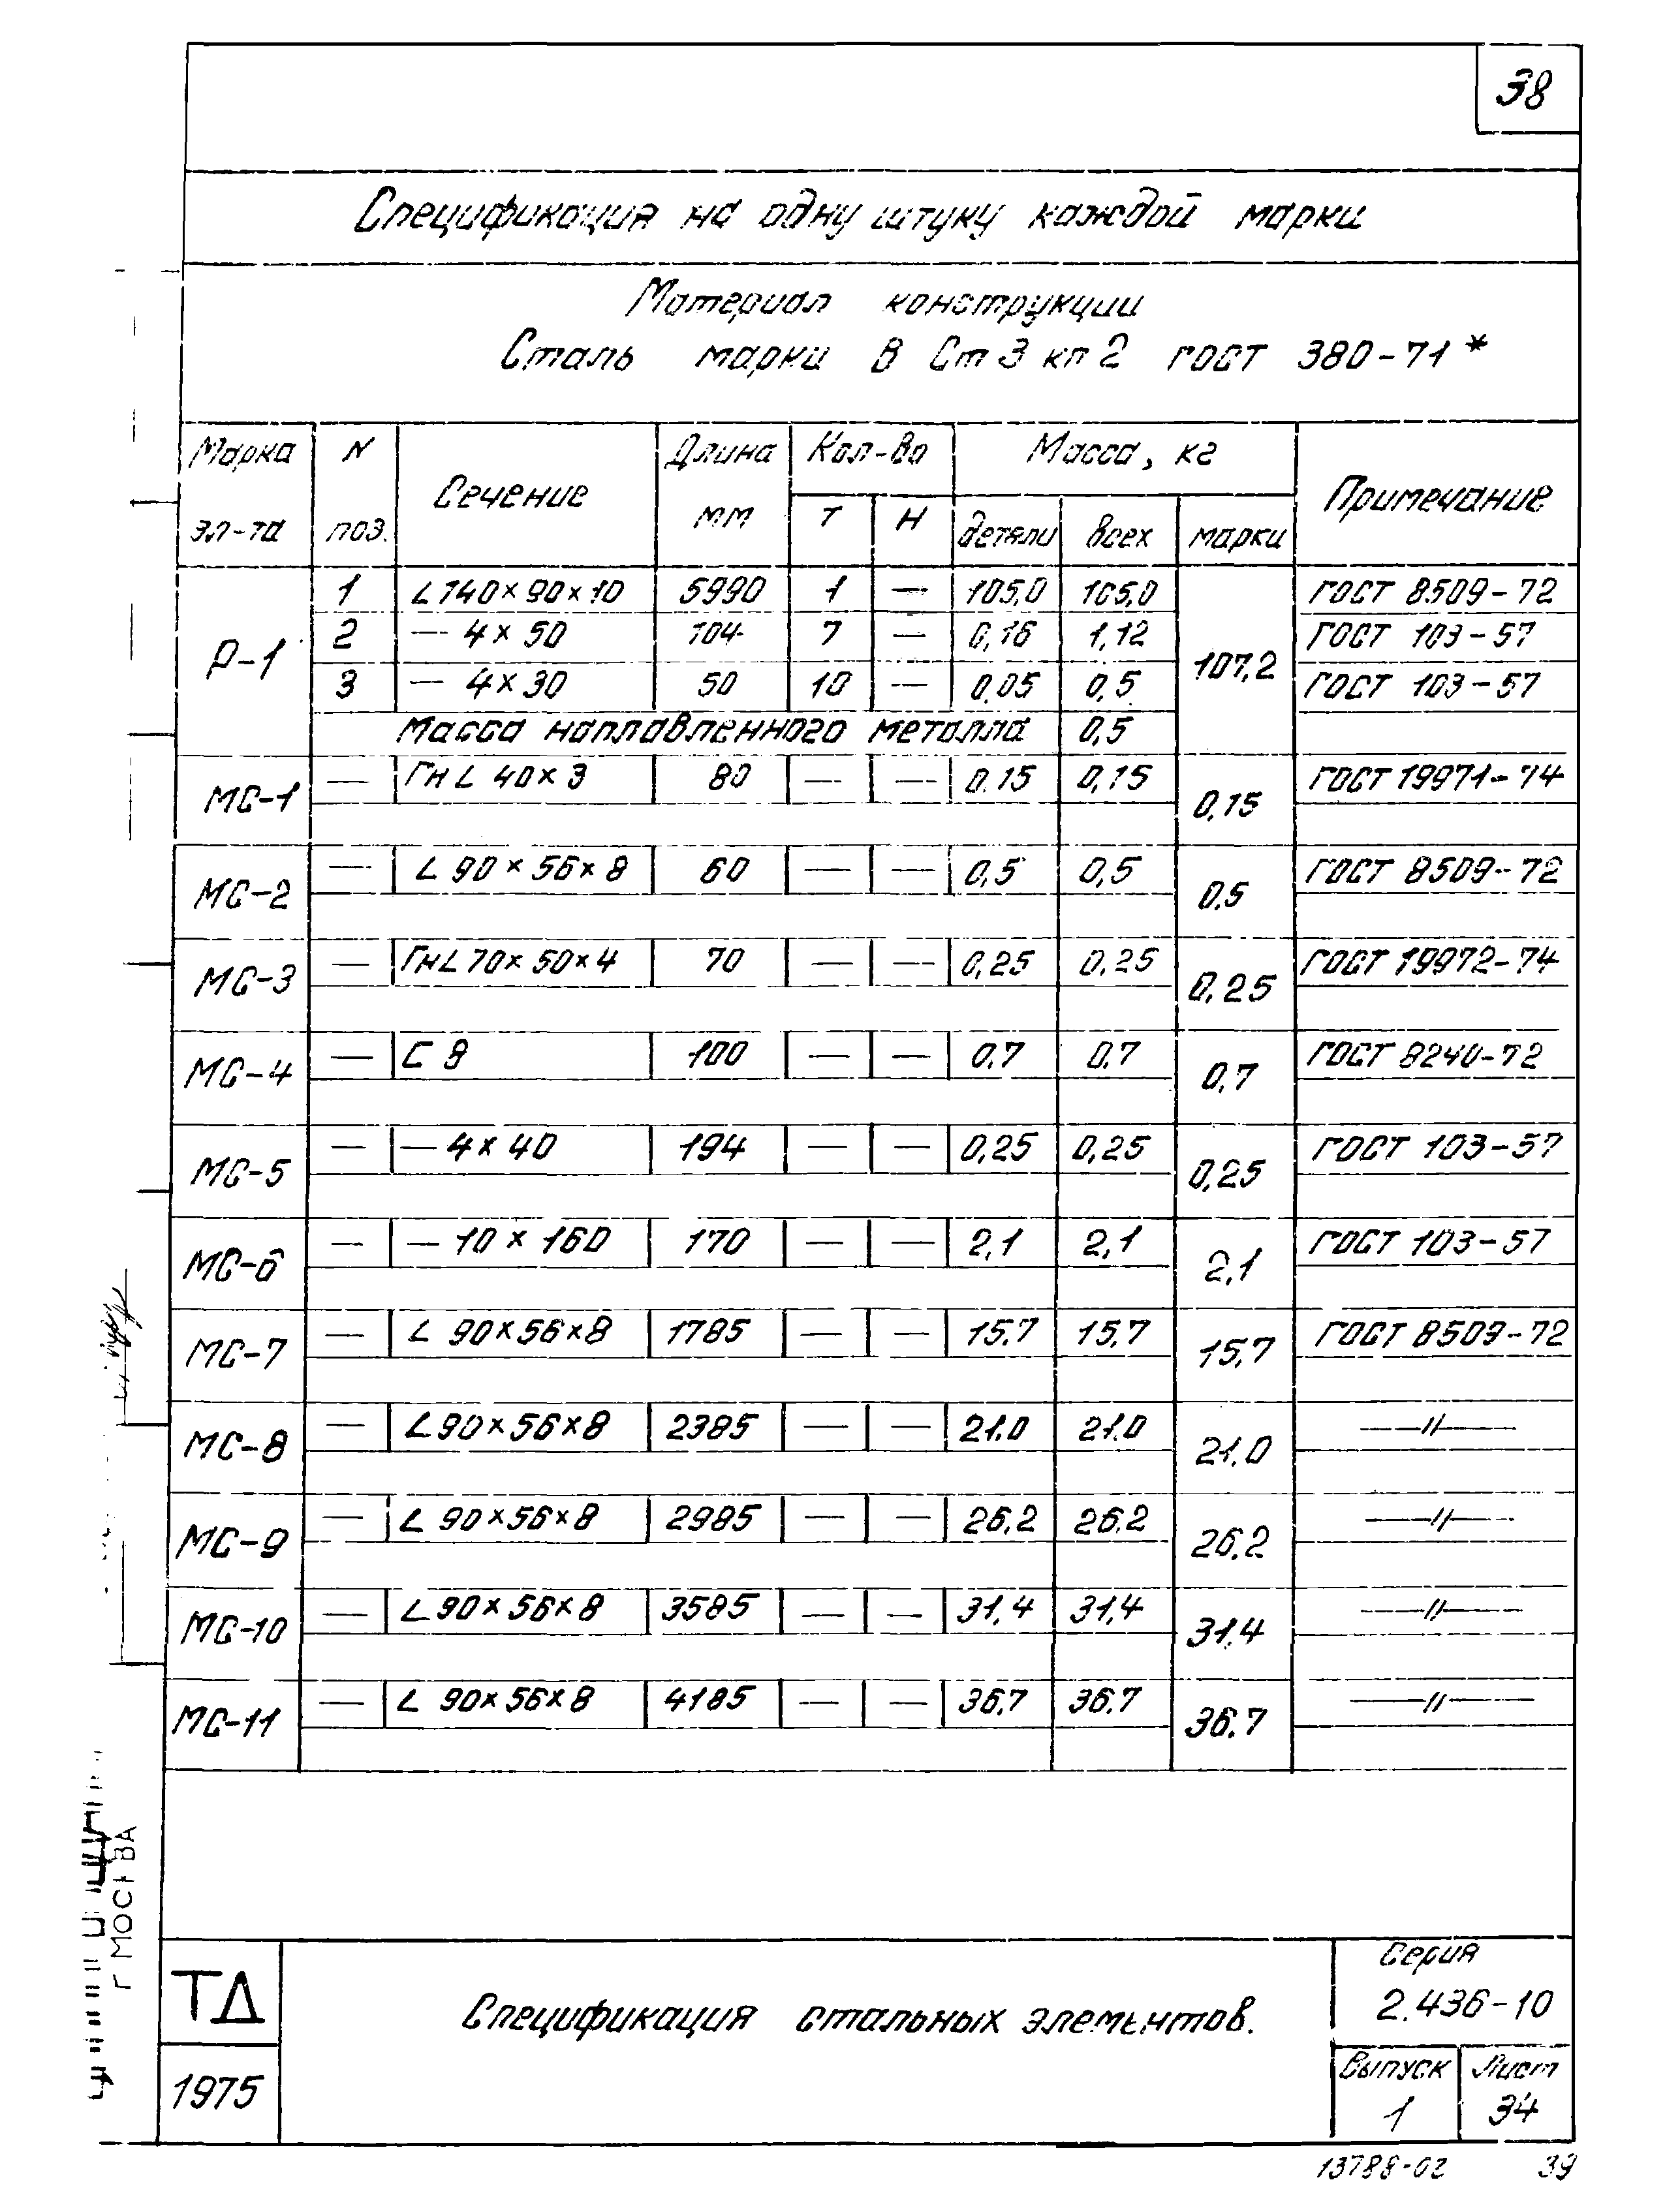 38
Спецификация на одну штуку каждой марки
Материал конструкции
Сталь марки В Ст 3 кп 2 ГОСТ 380-71*
Марка эл-та N поз. Сечение Длина мм Кол-во Масса, кг Примечание
Т Н детали всех марки
Р-1 1 L 140×90×10 5990 1 — 105,0 105,0 107,2 ГОСТ 8509-72
2 — 4×50 104 7 — 0,16 1,12 ГОСТ 103-57
3 — 4×30 50 10 — 0,05 0,5 ГОСТ 103-57
Масса наплавленного металла 0,5
МС-1 — Гн L 40×3 80 — — 0.15 0,15 0,15 ГОСТ 19971-74
МС-2 — L 90×56×8 60 — — 0,5 0,5 0,5 ГОСТ 8509-72
МС-3 — Гн L 70×50×4 70 — — 0,25 0,25 0,25 ГОСТ 19972-74
МС-4 — С 8 100 — — 0,7 0,7 0,7 ГОСТ 8240-72
МС-5 — — 4×40 194 — — 0,25 0,25 0,25 ГОСТ 103-57
МС-6 — — 10×160 170 — — 2,1 2,1 2,1 ГОСТ 103-57
МС-7 — L 90×56×8 1785 — — 15,7 15,7 15,7 ГОСТ 8509-72
МС-8 — L 90×56×8 2385 — — 21.0 21.0 21.0 —//—
МС-9 — L 90×56×8 2985 — — 26,2 26.2 26.2 —//—
МС-10 — L 90×56×8 3585 — — 31,4 31,4 31.4 —//—
МС-11 — L 90×56×8 4185 — — 36,7 36.7 36.7 —//—
Г МОСКВА
ТД
1975
Спецификация стальных элементов.
Серия
2.436-10
Выпуск Лист
1 34
13788-02 39